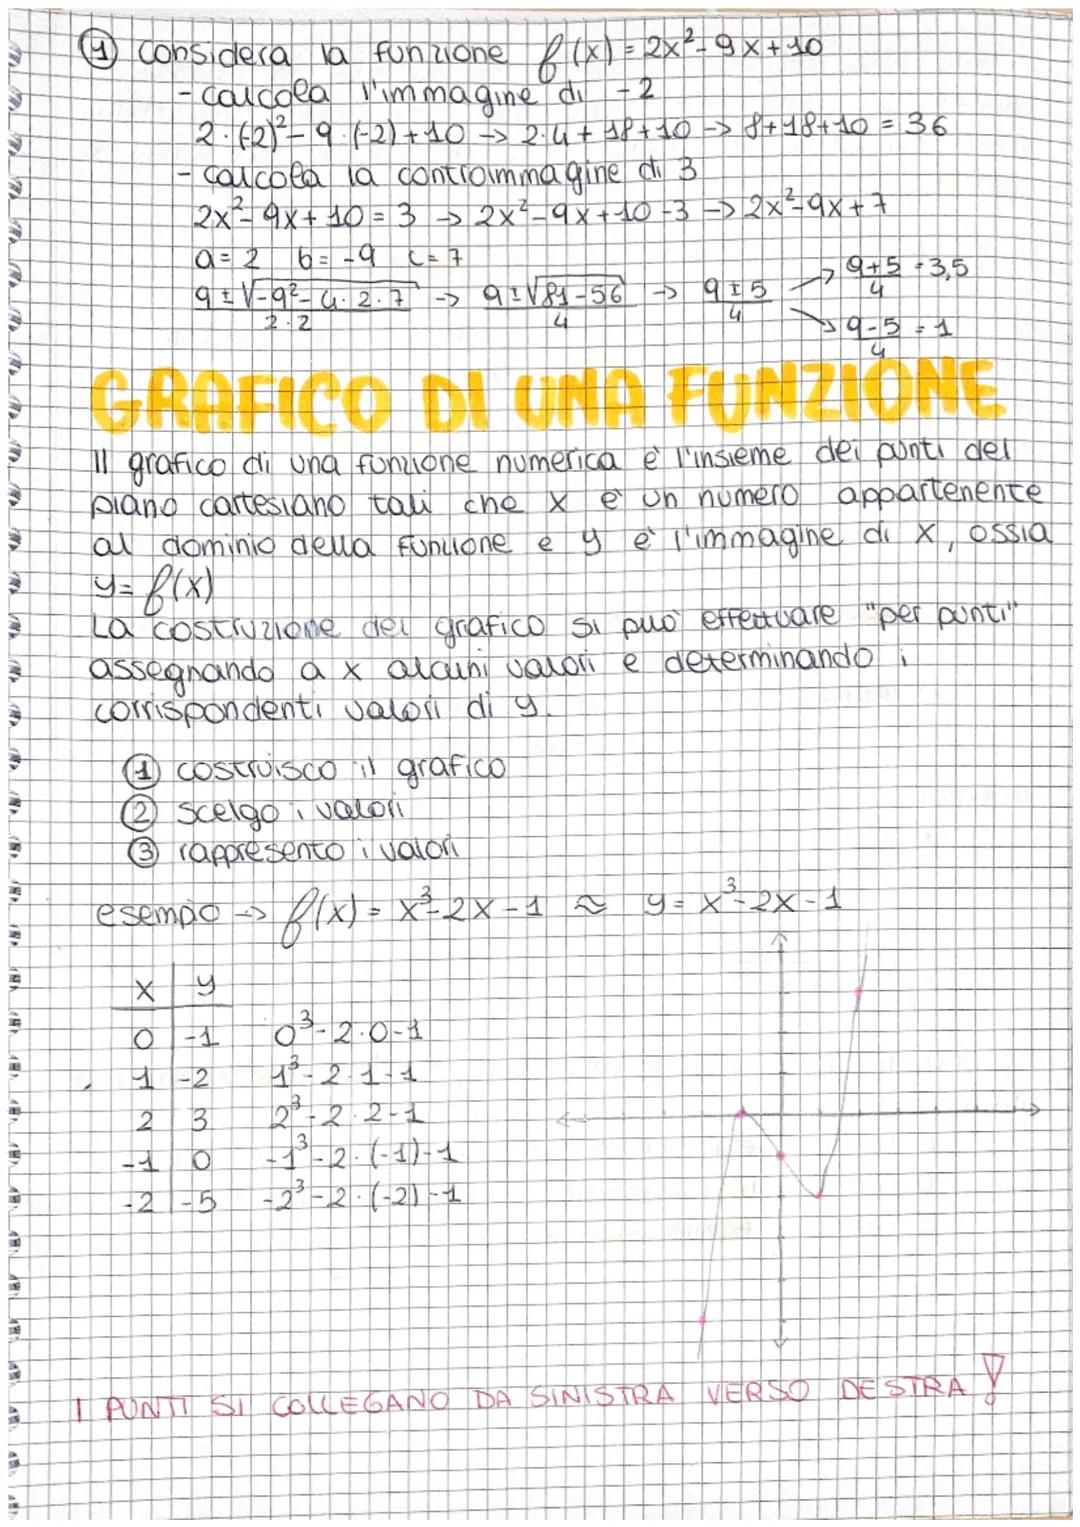 ④ considera la funzione f(x) = 2x²-9x+10
- calcola l'immagine di -2
2·(-2)²-9·(-2)+10 → 2·4+18+10 → 8+18+10 = 36
- calcola la controimmagine di 3
2x²-9x+10=3 → 2x²-9x+10-3 → 2x²-9x+7
a=2 b=-9 c=7
9±√-9²-4·2·7 / 2·2 → 9±√81-56 / 4 → 9±5 / 4 → 9+5 / 4 = 3,5
↘ 9-5 / 4 = 1
GRAFICO DI UNA FUNZIONE
Il grafico di una funzione numerica è l'insieme dei punti del
piano cartesiano tali che x è un numero appartenente
al dominio della funzione e y è l'immagine di x, ossia
y=f(x)
La costruzione del grafico si può effettuare "per punti"
assegnando a x alcuni valori e determinando i
corrispondenti valori di y.
① costruisco il grafico
② scelgo i valori
③ rappresento i valori
esempio → f(x) = x³-2x-1 ≈ y = x³-2x-1
x y
0 -1 0³-2·0-1
1 -2 1³-2·1-1
2 3 2³-2·2-1
-1 0 -1³-2·(-1)-1
-2 -5 -2³-2·(-2)-1
I PUNTI SI COLLEGANO DA SINISTRA VERSO DESTRA!